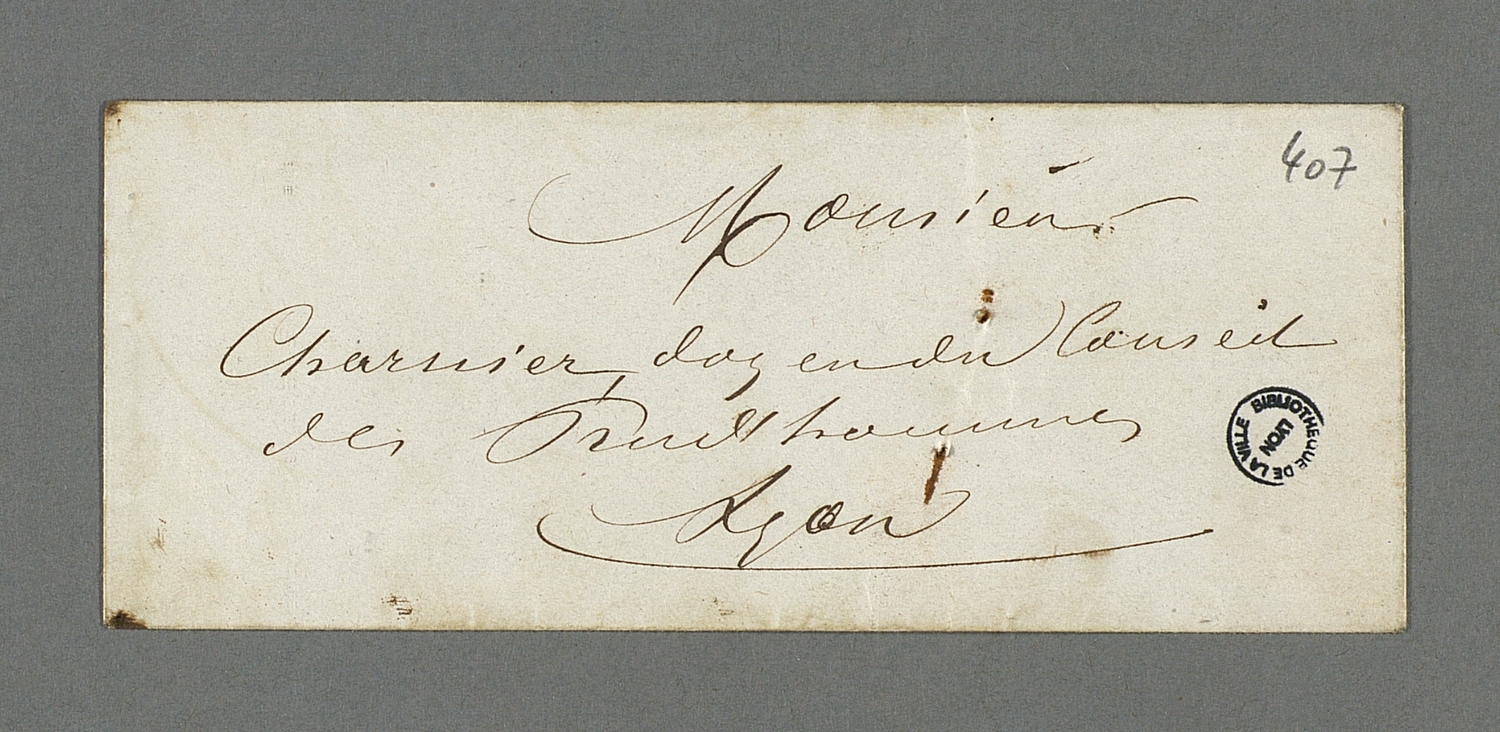 407
Monsieur
Charnier, doyen du Conseil
des Prud'hommes
Lyon
BIBLIOTHEQUE DE LA VILLE
LYON